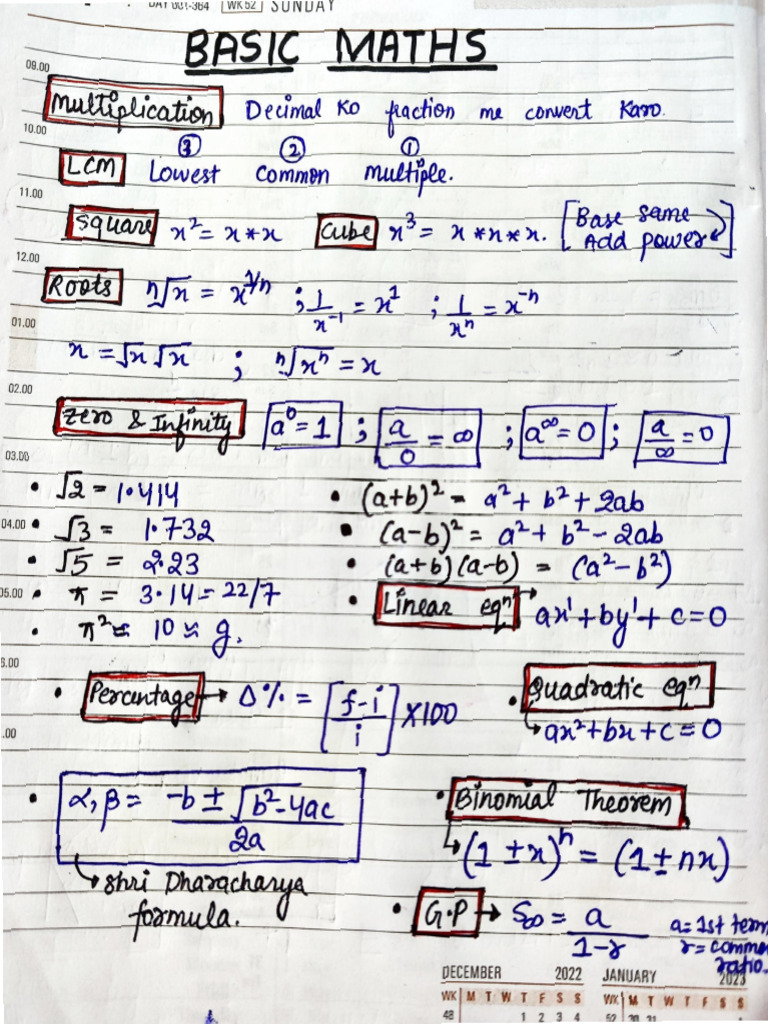 DAY 361-364 WK 52 SUNDAY
BASIC MATHS
09.00
Multiplication Decimal Ko fraction me convert Karo.
10.00
③ ② ①
LCM Lowest Common multiple.
11.00
Square x² = x*x Cube x³ = x*x*x. [Base same Add power]
12.00
Roots ⁿ√x = x^(1/n) ; 1/x⁻¹ = x¹ ; 1/xⁿ = x⁻ⁿ
01.00
x = √x √x ; ⁿ√xⁿ = x
02.00
Zero & Infinity a⁰ = 1 ; a/0 = ∞ ; a^∞ = 0 ; a/∞ = 0
03.00
• √2 = 1.414 • (a+b)² = a² + b² + 2ab
04.00 • √3 = 1.732 • (a-b)² = a² + b² - 2ab
• √5 = 2.23 • (a+b) (a-b) = (a² - b²)
05.00 • π = 3.14 = 22/7 • Linear eqⁿ → ax¹ + by¹ + c = 0
• π² ≈ 10 ≈ g.
6.00
• Percentage → Δ% = [f-i/i] X100 • Quadratic eqⁿ
.00 ↳ ax² + bx + c = 0
• α, β = -b ± √b²-4ac / 2a • Binomial Theorem
↳ (1 ± x)ⁿ = (1 ± nx)
↳ Shri Dharacharya
formula. • G.P → S∞ = a/1-r a = 1st term
r = common
ratio.
DECEMBER 2022 JANUARY 2023
WK M T W T F S S WK M T W T F S S
48 1 2 3 4 52 30 31